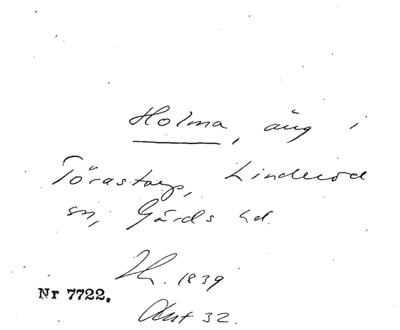 Holma, äng i
Törastorp, Linderöd
sn, Gärds hd.
1839
Nr 7722.
Akt 32.